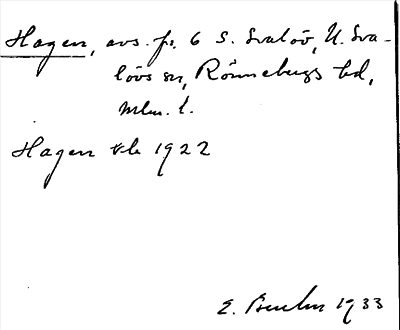 Hagen, avs. fr. 6 S. Svalöv, N. Sva-
lövs sn, Rönnebergs hd,
Mlm. l.
Hagen vb 1922
E. 1933